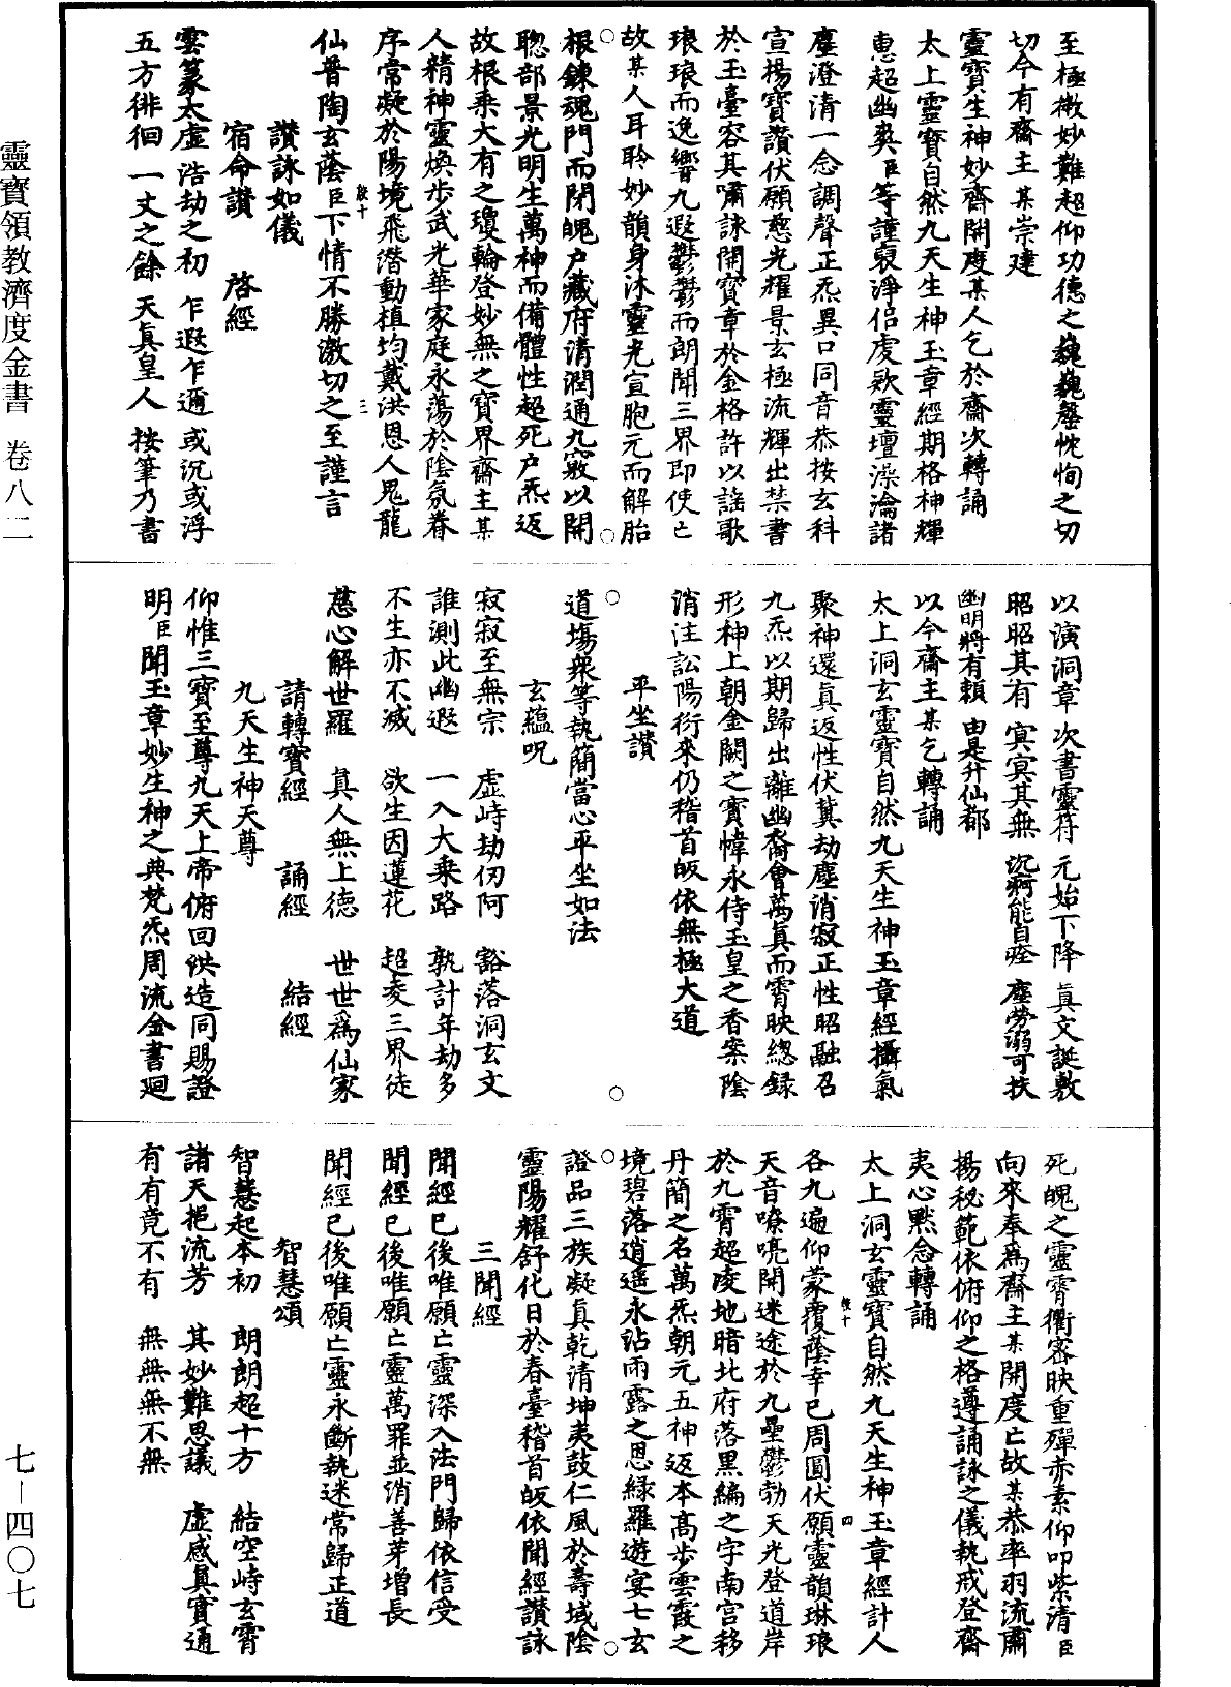 靈寶領教濟度金書 卷八二
七－四〇七
至極微妙難超仰功德之巍巍罄忱恂之切
切今有齋主某崇建
靈寶生神妙齋開度某人乞於齋次轉誦
太上靈寶自然九天生神玉章經期格神輝
惠超幽爽臣等謹裒淨侶虔欵靈壇澡瀹諸
塵澄清一念調聲正炁異口同音恭按玄科
宣揚寶讚伏願慈光耀景玄極流輝出禁書
於玉臺容其嘯詠開寶章於金格許以謠歌
琅琅而逸響九遐鬱鬱而朗聞三界即使亡
故某人耳聆妙韻身沐靈光宣胞元而解胎
根鍊魂門而閉魄戶藏府清潤通九竅以開
聰部景光明生萬神而備體性超死戶炁返
故根乘大有之瓊輪登妙無之寶界齋主某
人精神靈煥步武光華家庭永蕩於陰氛眷
序常凝於陽境飛潛動植均戴洪恩人鬼龍
仙普陶玄蔭臣下情不勝激切之至謹言
讚詠如儀
宿命讚 啓經
雲篆太虛 浩劫之初 乍遐乍邇 或沉或浮
五方徘徊 一丈之餘 天真皇人 按筆乃書
以演洞章 次書靈符 元始下降 真文誕敷
昭昭其有 冥冥其無 沉痾能自痊 塵勞溺可扶
幽明將有賴 由是升仙都
以今齋主某乞轉誦
太上洞玄靈寶自然九天生神玉章經攝氣
聚神還真返性伏冀劫塵消寂正性昭融召
九炁以期歸出離幽裔會萬真而霄映總錄
形神上朝金闕之寶幃永侍玉皇之香案陰
消注訟陽衍來仍稽首皈依無極大道
平坐讚
道場衆等執簡當心平坐如法
玄蘊呪
寂寂至無宗 虛峙劫仞阿 豁落洞玄文
誰測此幽遐 一入大乘路 孰計年劫多
不生亦不滅 欲生因蓮花 超凌三界徒
慈心解世羅 真人無上德 世世爲仙家
請轉寶經 誦經 結經
九天生神天尊
仰惟三寶至尊九天上帝俯回洪造同賜證
明臣聞玉章妙生神之典梵炁周流金書迴
死魄之靈霄衢密映重殫赤素仰叩紫清臣
向來奉爲齋主某開度亡故某恭率羽流肅
揚秘範依俯仰之格遵誦詠之儀執戒登齋
夷心默念轉誦
太上洞玄靈寶自然九天生神玉章經計人
各九遍仰蒙覆蔭幸已周圓伏願靈韻琳琅
天音嘹喨開迷途於九壘鬱勃天光登道岸
於九霄超凌地暗北府落黑編之字南宮移
丹簡之名萬炁朝元五神返本高步雲霞之
境碧落逍遙永沾雨露之恩綠羅遊宴七玄
證品三族凝真乾清坤夷鼓仁風於壽域陰
靈陽耀舒化日於春臺稽首皈依聞經讚詠
三聞經
聞經已後唯願亡靈深入法門歸依信受
聞經已後唯願亡靈萬罪並消善芽增長
聞經已後唯願亡靈永斷執迷常歸正道
智慧頌
智慧起本初 朗朗超十方 結空峙玄霄
諸天挹流芳 其妙難思議 虛感真實通
有有竟不有 無無無不無